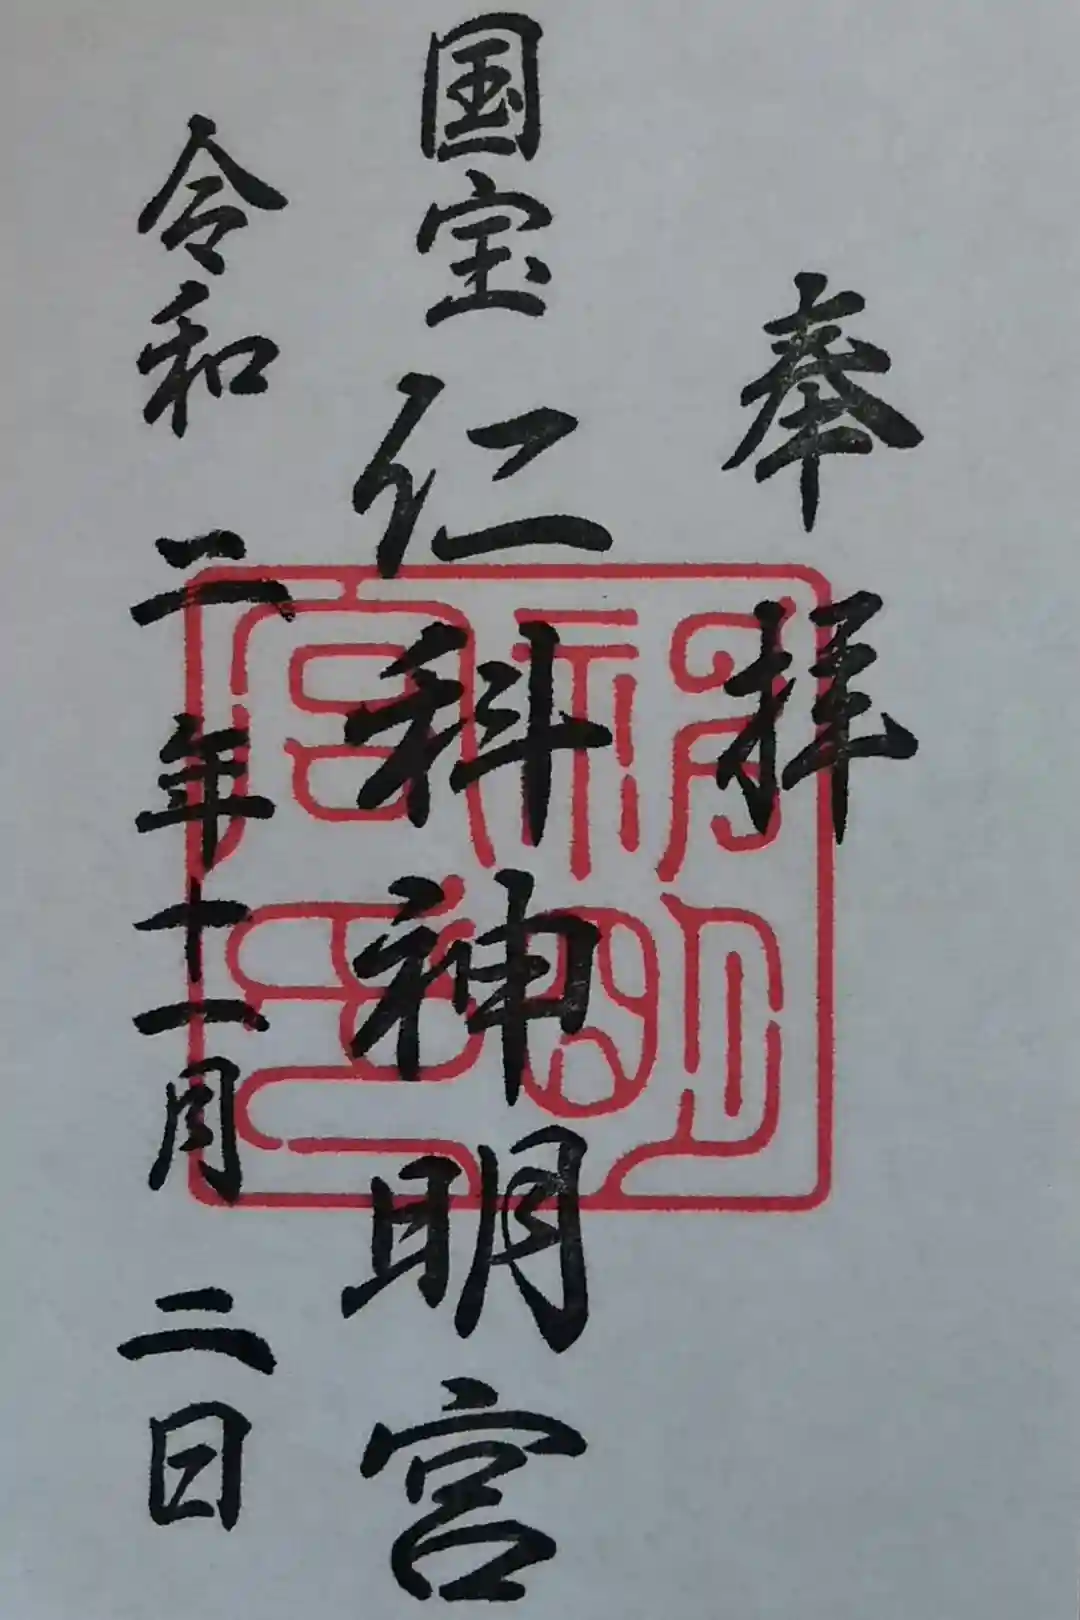 奉拝
国宝 仁科神明宮
令和二年十一月二日
神明宮印